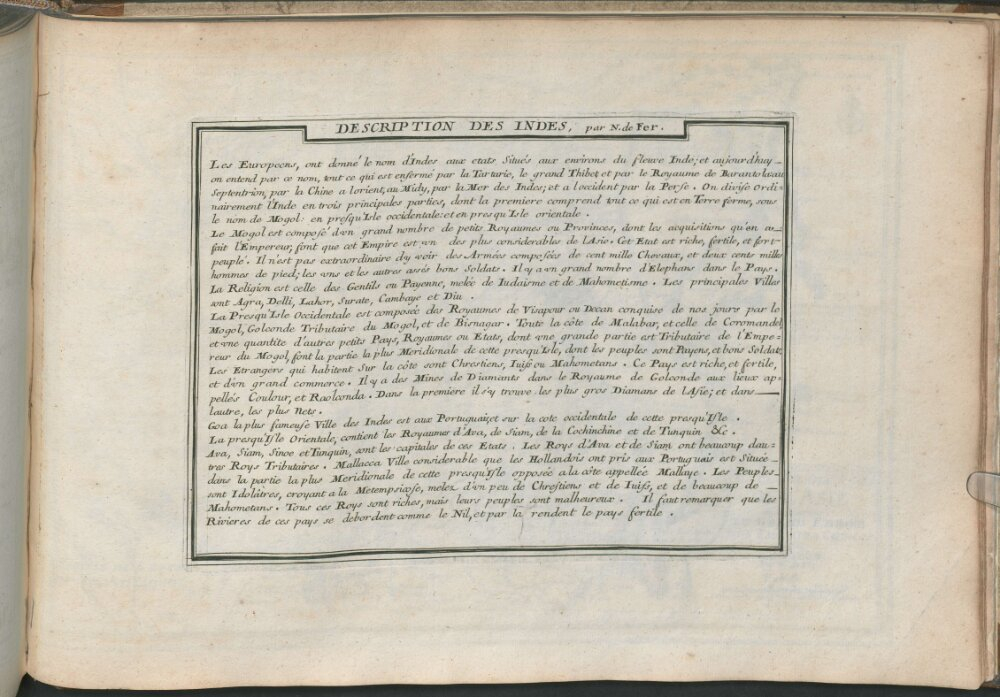 DESCRIPTION DES INDES, par N. de Fer.
Les Europeens, ont donné le nom d'Indes aux etats Situés aux environs du fleuve Inde; et aujourd'huy
on entend par ce nom, tout ce qui est enfermé par la Tartarie, le grand Thibet et par le Royaume de Barantola au
Septentrion, par la Chine a lorient, au Midy, par la Mer des Indes; et a l'occident par la Perse. On divise Ordi-
nairement l'Inde en trois principales parties, dont la premiere comprend tout ce qui est en Terre ferme, sous
le nom de Mogol: en presqu'Isle occidentale: et en presqu'Isle orientale.
Le Mogol est composé d'un grand nombre de petits Royaumes ou Provinces, dont les acquisitions qu'en a
fait l'Empereur, font que cet Empire est un des plus considerables de l'Asie. Cet Etat est riche, fertile, et fort
peuplé. Il n'est pas extraordinaire d'y voir des Armées composées de cent mille Chevaux, et deux cents mille
hommes de pied; les uns et les autres assés bons Soldats. Il y a un grand nombre d'Elephans dans le Pays.
La Religion est celle des Gentils ou Payenne, melée de Iudaisme et de Mahometisme. Les principales Villes
sont Agra, Delli, Lahor, Surate, Cambaye et Diu.
La Presqu'Isle Occidentale est composée des Royaumes de Visapour ou Decan conquise de nos jours par le
Mogol, Golconde Tributaire du Mogol, et de Bisnagar. Toute la côte de Malabar, et celle de Coromandel,
et une quantite d'autres petits Pays, Royaumes ou Etats, dont une grande partie est Tributaire de l'Empe-
reur du Mogol, font la partie la plus Meridionale de cette presqu'Isle, dont les peuples sont Payens, et bons Soldats.
Les Etrangers qui habitent Sur la côte sont Chrestiens, Iuifs ou Mahometans. Ce Pays est riche, et fertile,
et d'un grand commerce. Il y a des Mines de Diamants dans le Royaume de Golconde aux lieux ap-
pellés Coulour, et Raolconda. Dans la premiere il s'y trouve les plus gros Diamans de l'Asie; et dans
lautre, les plus Nets.
Goa la plus fameuse Ville des Indes est aux Portuguais, et sur la cote occidentale de cette presqu'Isle.
La presqu'Isle Orientale, contient les Royaumes d'Ava, de Siam, de la Cochinchine et de Tunquin &c.
Ava, Siam, Sinoe et Tunquin, sont les capitales de ces Etats. Les Roys d'Ava et de Siam ont beaucoup dau-
tres Roys Tributaires. Mallacca Ville considerable que les Hollandois ont pris aux Portuguais est Située
dans la partie la plus Meridionale de cette presqu'Isle opposée a la côte appellée Mallaye. Les Peuples
sont Idolâtres, croyant a la Metempsicose, melez d'un peu de Chrestiens et de Iuifs, et de beaucoup de
Mahometans. Tous ces Roys sont riches, mais leurs peuples sont malheureux. Il faut remarquer que les
Rivieres de ces pays se debordent comme le Nil, et par la rendent le pays fertile.